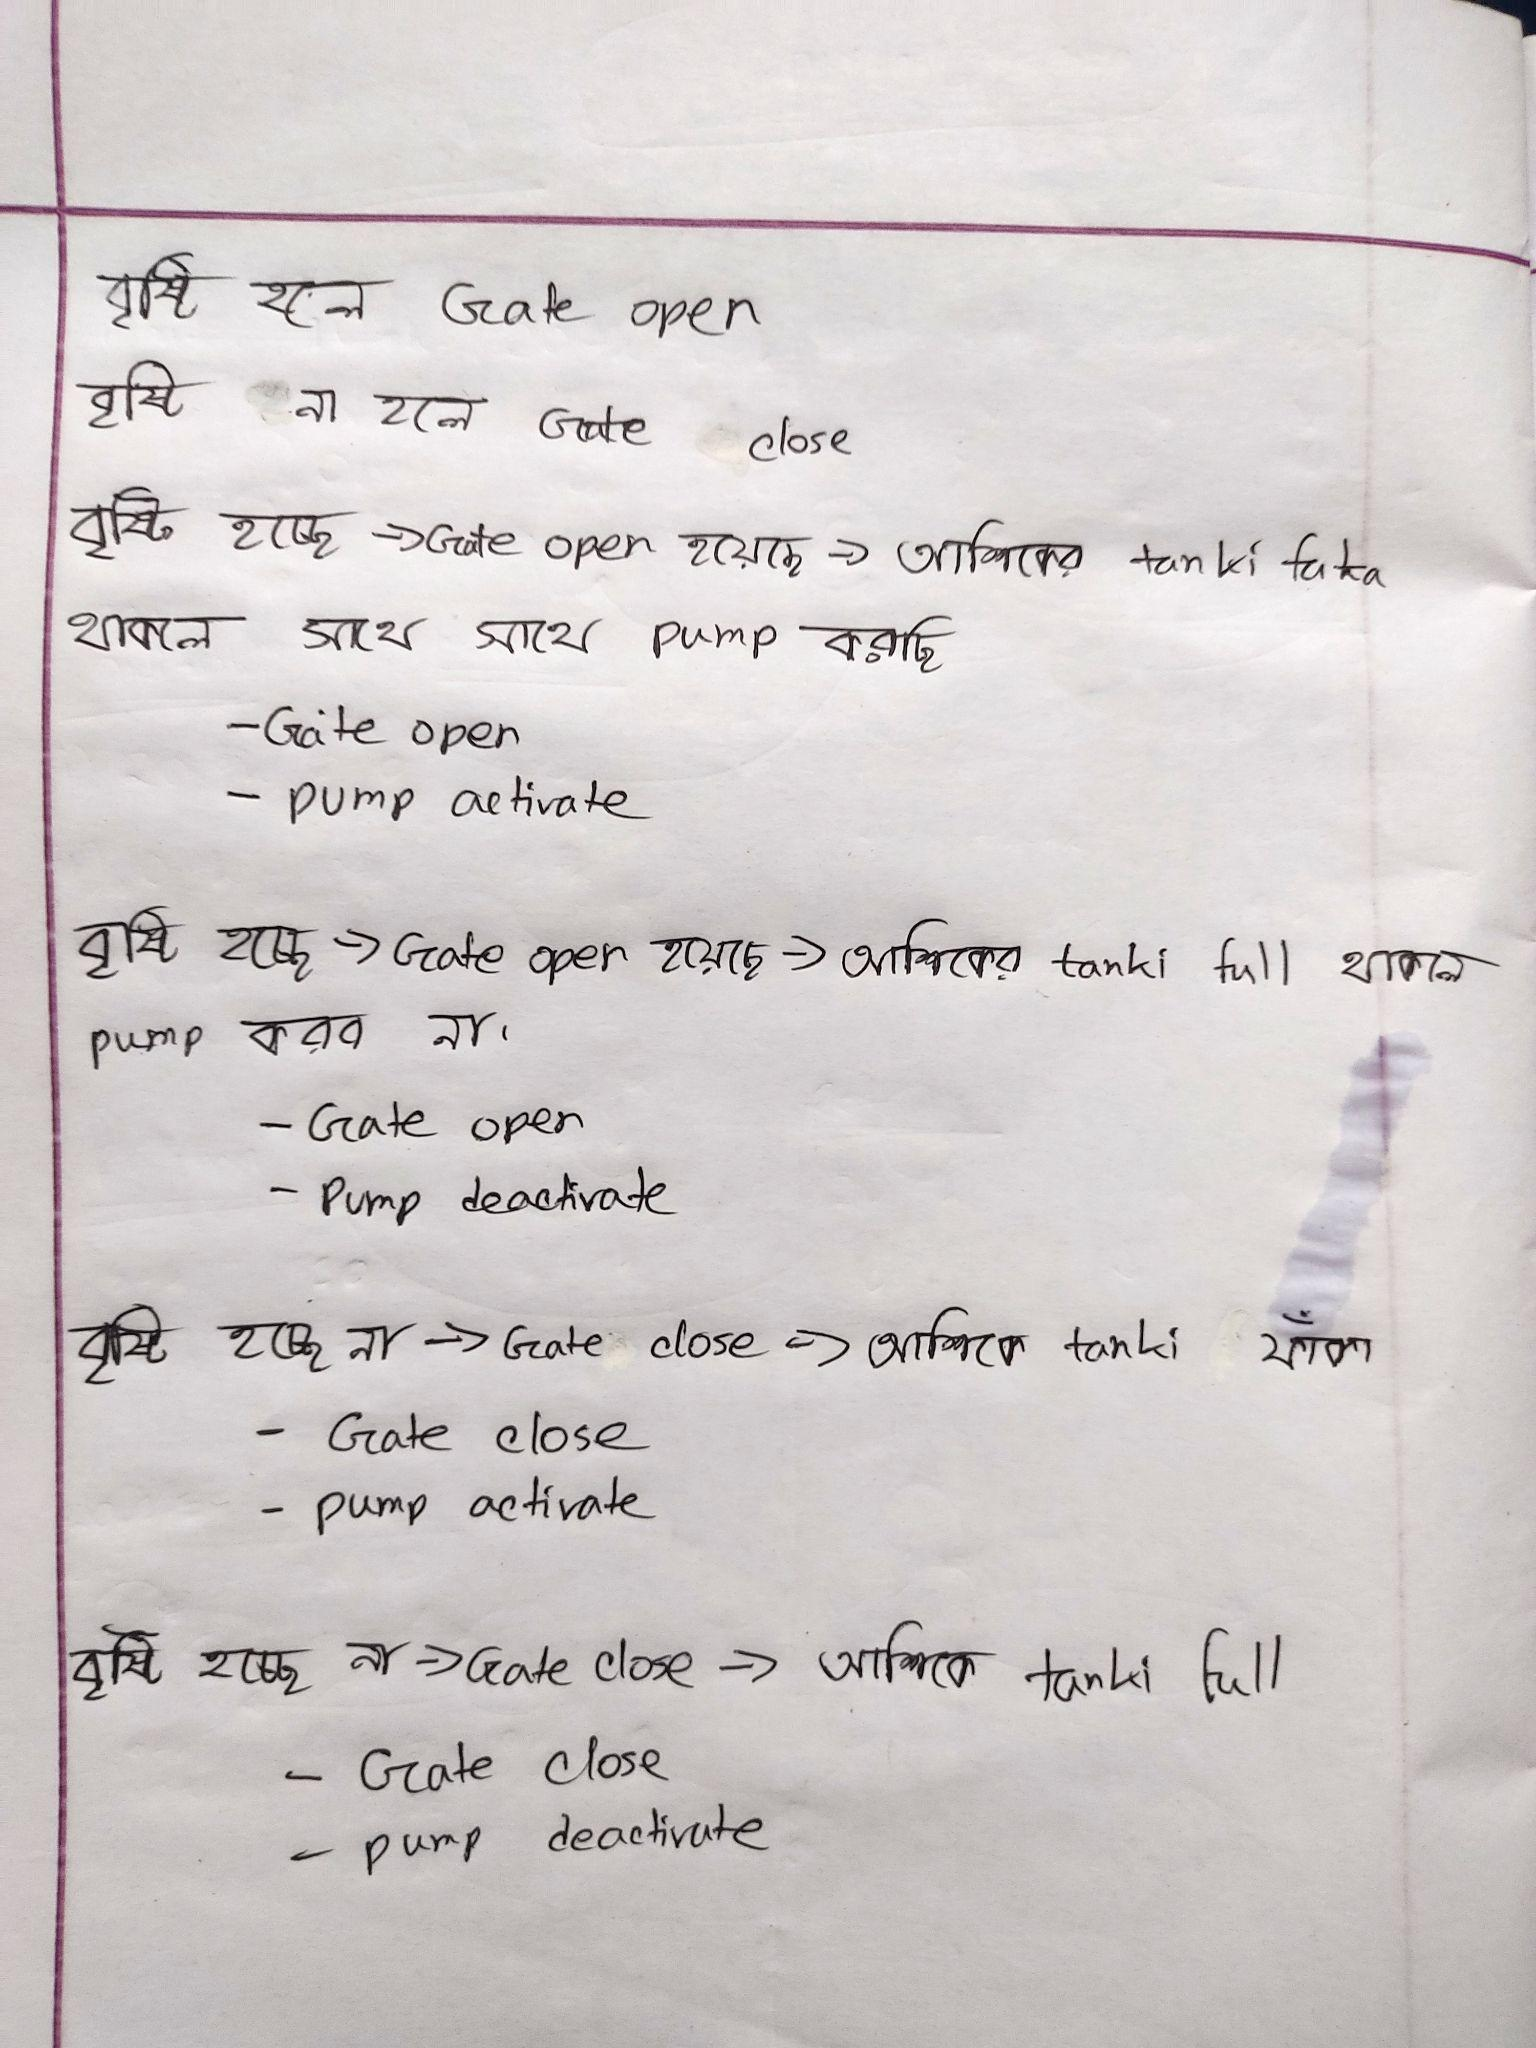 বৃষ্টি হলে Gate open
বৃষ্টি না হলে Gate close
বৃষ্টি হচ্ছে → Gate open হয়েছে → আশিকের tanki faka
থাকলে সাথে সাথে pump করছি
- Gate open
- pump activate
বৃষ্টি হচ্ছে → Gate open হয়েছে → আশিকের tanki full থাকলে
pump করব না।
- Gate open
- Pump deactivate
বৃষ্টি হচ্ছে না → Gate close → আশিকে tanki ফাঁকা
- Gate close
- pump activate
বৃষ্টি হচ্ছে না → Gate close → আশিকে tanki full
- Gate close
- pump deactivate